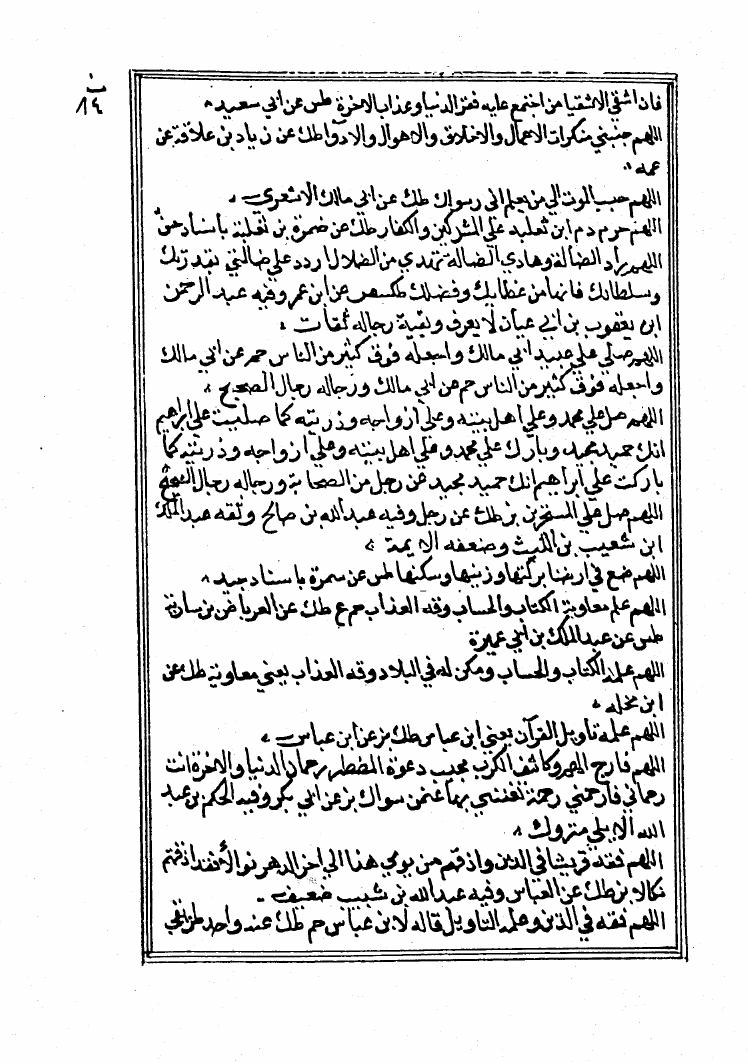 ب
١٤
فان اشقى الاشقيا من اجتمع عليه فقر الدنيا وعذاب الاخرة طس عن ابي سعيد
اللهم جنبني منكرات الاعمال والاخلاق والاهوا والادوا طك عن زياد بن علاقة عن
عمه
اللهم حبب الموت الي من يعلم اني رسولك طك عن ابي مالك الاشعري
اللهم حرم دم ابن ثعلبه علي المشركين والكفار طك عن ضمرة بن ثعلبة باسناد حسن
اللهم راد الضالة وهادي الضالة تهدي من الضلال اردد علي ضالتي بقدرتك
وسلطانك فانها من عطايك وفضلك طكسص عن ابن عمر وفيه عبد الرحمن
ابن يعقوب بن ابي عباد لا يعرف وبقية رجاله ثقات
اللهم صلي علي عبيد ابي مالك واجعله فوق كثير من الناس حم عن ابي مالك
واجعله فوق كثير من الناس حم عن ابي مالك ورجاله رجال الصحيح
اللهم صل علي محمد وعلي اهل بيته وعلي ازواجه وذريته كما صليت علي ابراهيم
انك حميد مجيد وبارك علي محمد وعلي اهل بيته وعلي ازواجه وذريته كما
باركت علي ابراهيم انك حميد مجيد عن رجل من الصحابة ورجاله رجال الصحيح
اللهم صل علي المتسخرين بز طك عن رجل وفيه عبد الله بن صالح وثقه عبد الملك
ابن شعيب بن الليث وضعفه الايمة
اللهم ضع في ارضنا بركتها وزينتها وسكنها طس عن سمرة باسناد جيد
اللهم علم معاوية الكتاب والحساب وقه العذاب حم ع طك عن العرباض بن سارية
طس عن عبد الملك بن ابي عميرة
اللهم علمه الكتاب والحساب ومكن له في البلاد وقه العذاب يعني معاوية طك عن
ابن مخلد
اللهم علمه تاويل القرآن يعني ابن عباس طك بز عن ابن عباس
اللهم فارج الهم وكاشف الكرب مجيب دعوة المضطر رحمان الدنيا والاخرة انت
رحماني فارحمني رحمة تغنني بها عمن سواك بز عن ابي بكر وفيه الحكم بن عبد
الله الايلي متروك
اللهم فقه قريشا في الدين واذقهم من يومي هذا الي اخر الدهر نوالا فقد اذقتهم
نكالا بز طك عن العباس وفيه عبد الله بن شبيب ضعيف
اللهم فقه في الدين وعلمه التاويل قاله لابن عباس حم طك عنه واحد طرايقي